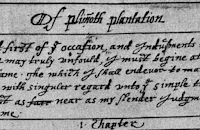 Of plimoth plantation
first of yͤ occasion, and Indusments
may truly unfould, y^t must begine at
ame. The which I shall endevor to ma
with singuler regard unto yͤ simple t
it as near as my slender Judgm
me.
1. Chapter